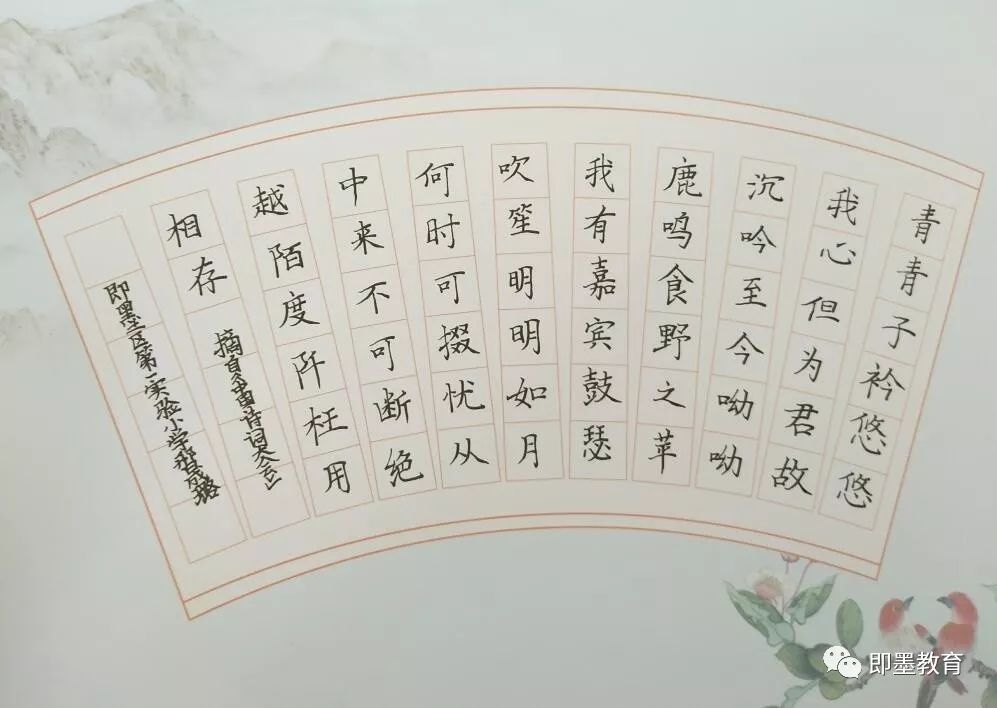 青青子衿悠悠
我心但为君故
沉吟至今呦呦
鹿鸣食野之苹
我有嘉宾鼓瑟
吹笙明明如月
何时可掇忧从
中来不可断绝
越陌度阡枉用
相存
摘自《中国诗词大会》
即墨区第一实验小学
即墨教育